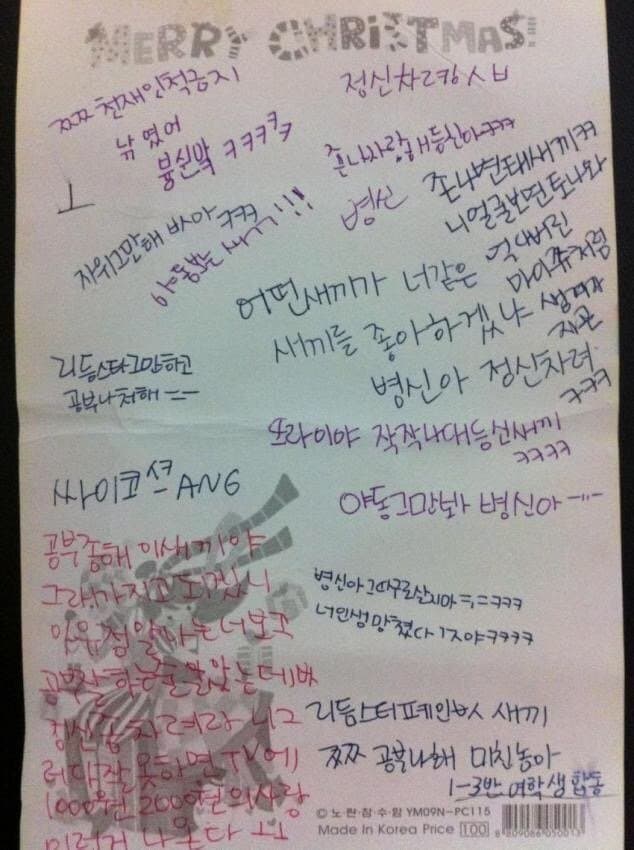 MERRY CHRISTMAS!
쯔쯔 천재인척금지
낚였어
븅신막 ㅋㅋㅋㅋ
정신차려
존나사랑해등신아ㅋㅋㅋ
병신
존나변태새끼ㅋㅋ
니얼굴보면토나와
자위그만해
ㅋㅋㅋ
새끼!!!
어떤새끼가 너같은
새끼를 좋아하겠냐
병신아 정신차려
마이쮸처럼
생겨가
ㅋㅋㅋ
리듬스타그만하고
공부나처해 ㅡㅡ
또라이야 작작나대등신새끼
ㅋㅋㅋㅋ
싸이코 ANG
야동그만봐 병신아 ㅡㅡ
공부좀해 이새끼야
그래가지고
너보고
공부잘하는줄알았는데
정신좀 차려라 니그
러다잘못하면 TV에
1000원 2000원의사랑
이런거 나온다 ㅜㅜ
병신아그따구로살지마ㅋㅋㅋ
너인생망쳤다
리듬스타페인 새끼
쯔쯔 공부나해 미친놈아
1-3반 여학생합동
© 노·란·잠·수·함 YM09N-PC115
Made in Korea Price 100
8 809086 050013